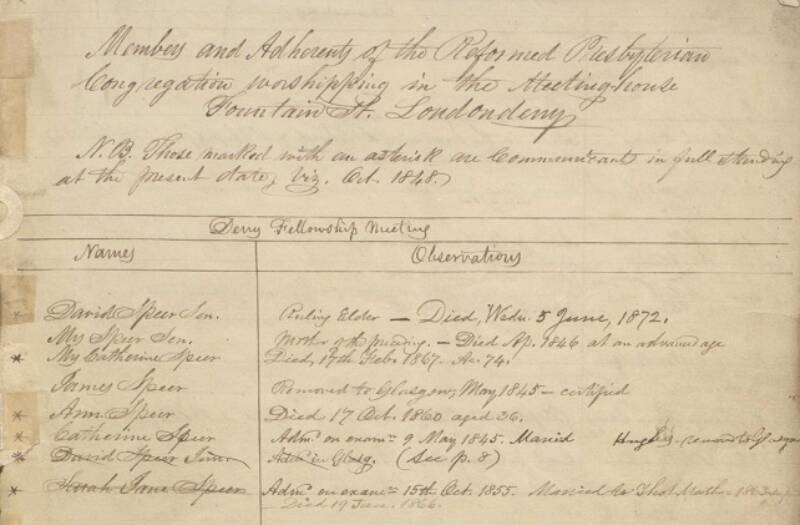 Members and Adherents of the Reformed Presbyterian
Congregation worshipping in the Meeting-house
Fountain St. Londonderry
N.B. Those marked with an asterisk are Communicants in full standing
at the present date, viz. Oct. 1848.
Derry Fellowship Meeting
Names Observations
* David Speer Sen. Ruling Elder — Died, Wedn. 5 June, 1872.
Mrs Speer Sen. Mother of the preceding. — Died Ap. 1846 at an advanced age
* Mrs Catherine Speer Died, 17th Feb. 1867. Ae. 74.
James Speer Removed to Glasgow, May, 1845 — certified
* Ann Speer Died 17 Oct. 1860 aged 26.
* Catherine Speer Admd. on examn. 9 May 1845. Married Hughes - removed to Glasgow
* David Speer Junr. Admd. in Glasg. (See p. 8)
* Sarah Jane Speer Admd. on examn. 15th Oct. 1855. Married to Thos.
Died 19 June 1866.